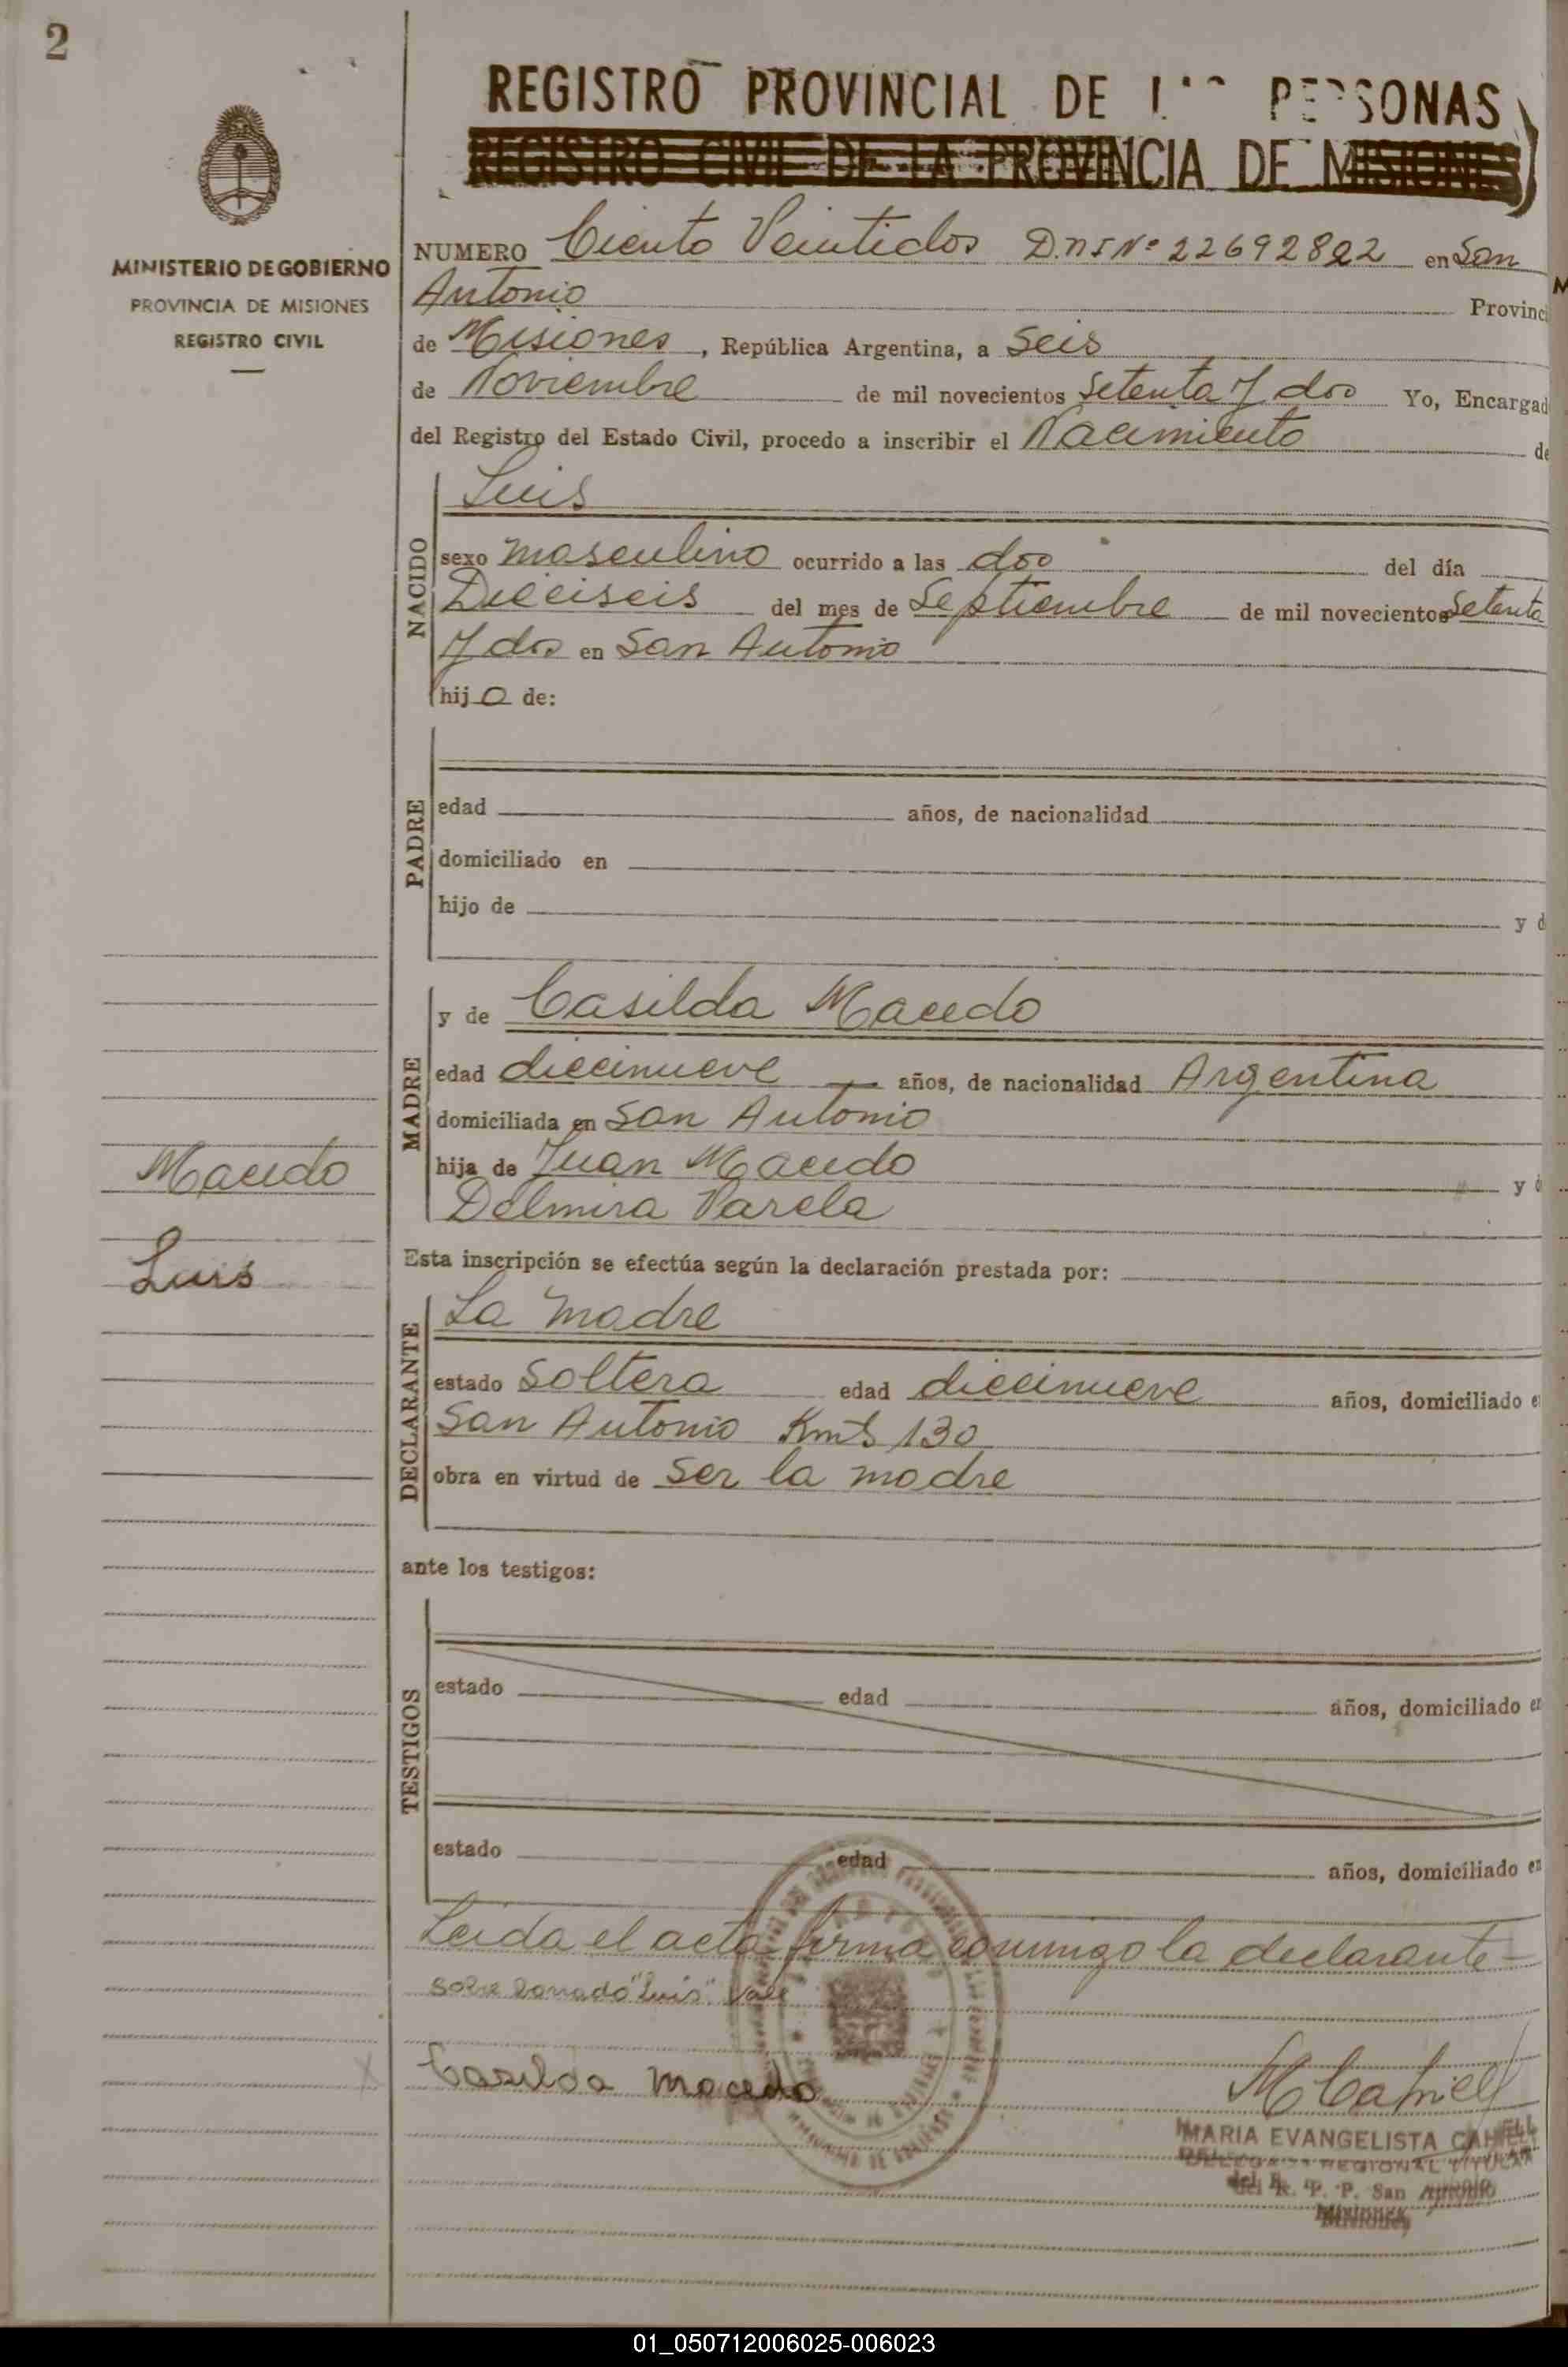 2
REGISTRO PROVINCIAL DE PERSONAS
REGISTRO CIVIL DE LA PROVINCIA DE MISIONES
MINISTERIO DE GOBIERNO
PROVINCIA DE MISIONES
REGISTRO CIVIL
NUMERO Ciento Veintidos D.N.I Nº 22692822 en San
Antonio Provinci
de Misiones, República Argentina, a Seis
de Noviembre de mil novecientos Setenta y dos Yo, Encargad
del Registro del Estado Civil, procedo a inscribir el Nacimiento de
NACIDO
Luis
sexo masculino ocurrido a las dos del día
Dieciseis del mes de Septiembre de mil novecientos Setenta
y dos en San Antonio
hijo de:
PADRE
edad años, de nacionalidad
domiciliado en
hijo de y d
MADRE
y de Casilda Macedo
edad diecinueve años, de nacionalidad Argentina
domiciliada en San Antonio
hija de Juan Macedo y d
Delmira Varela
Macedo
Luis
Esta inscripción se efectúa según la declaración prestada por:
DECLARANTE
La madre
estado Soltera edad diecinueve años, domiciliado e
San Antonio Kmts 130
obra en virtud de ser la madre
ante los testigos:
TESTIGOS
estado edad años, domiciliado en
estado edad años, domiciliado en
Leida el acta firma conmigo la declarante-
Sobre Borrado "Luis" Vale
Casilda Macedo
MARIA EVANGELISTA CAHIELL
DELEGADA REGIONAL TITULAR
del R. P. P. San Antonio
Misiones
01_050712006025-006023